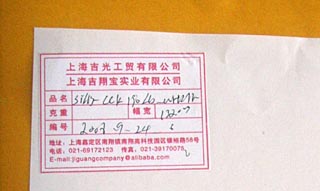 上海吉光工贸有限公司
上海吉翔宝实业有限公司
品名
克重 幅宽
编号 2003-9-24
地址：上海嘉定区南翔镇南翔高科技园区银裕路56号
电话：021-69172123 传真：021-39170078
E-mail:jiguangcompany@alibaba.com